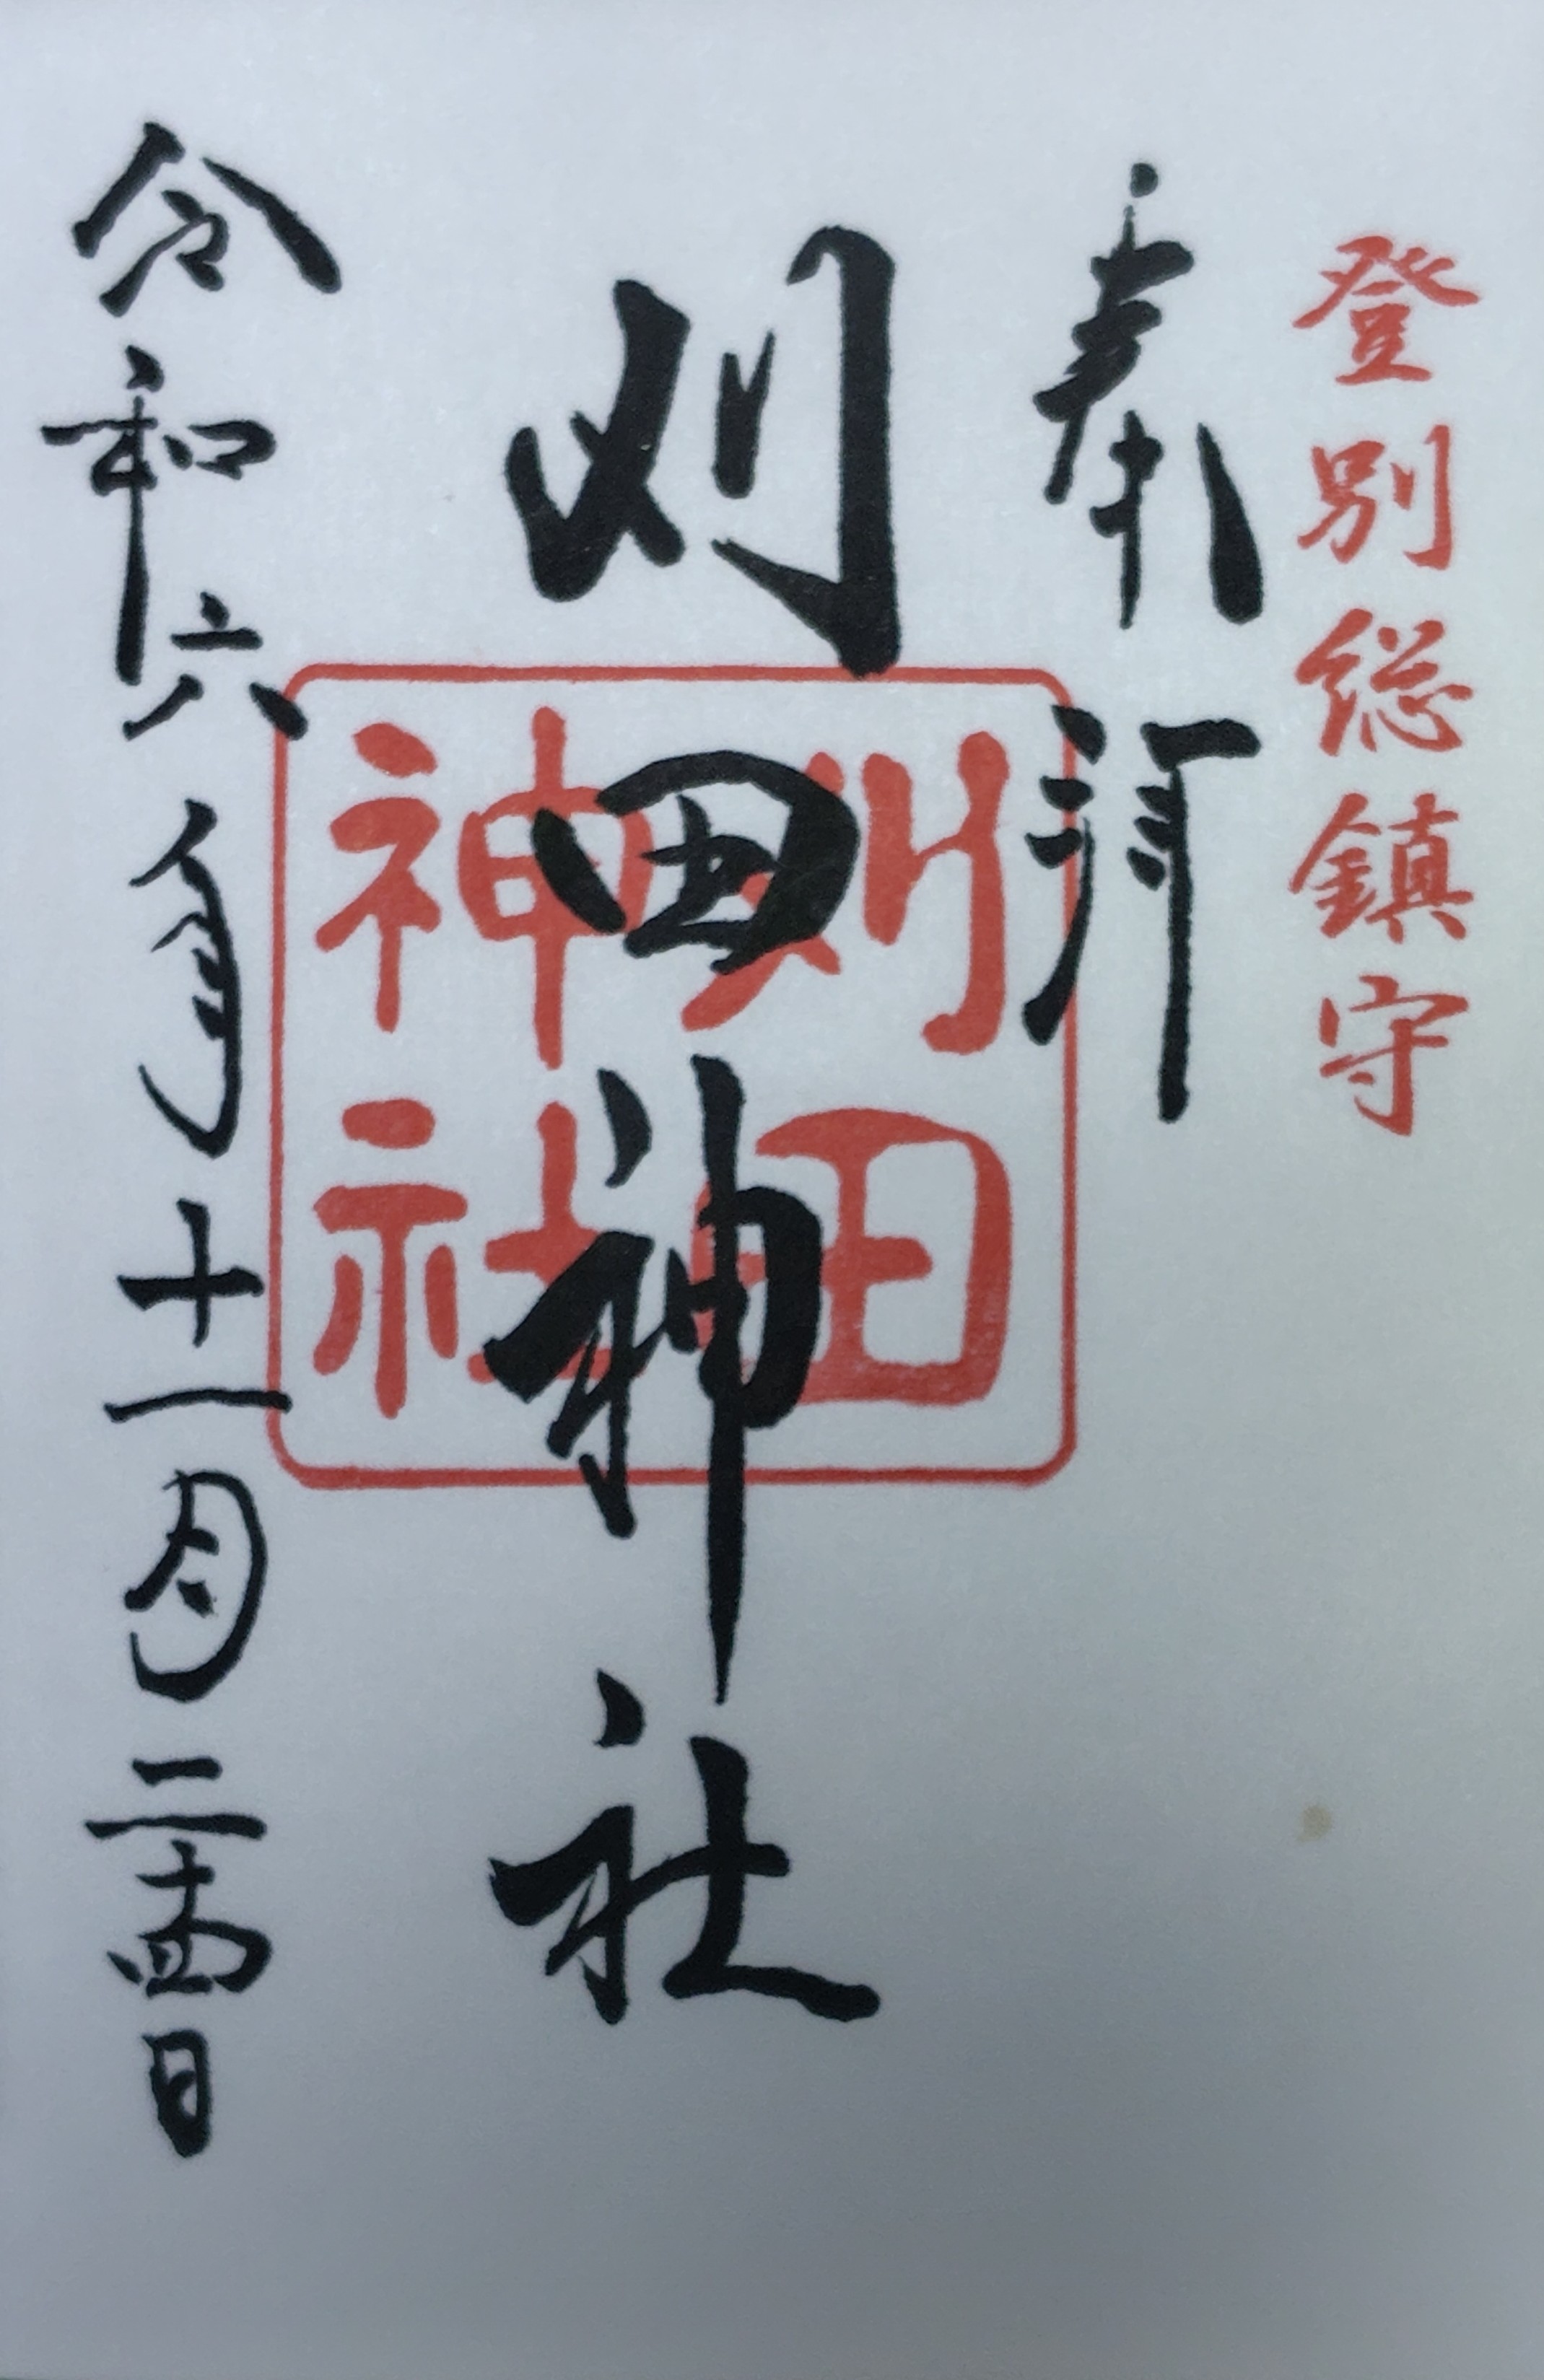 登別総鎮守
奉拝
刈田神社
刈田
神社
令和六年十一月二十四日